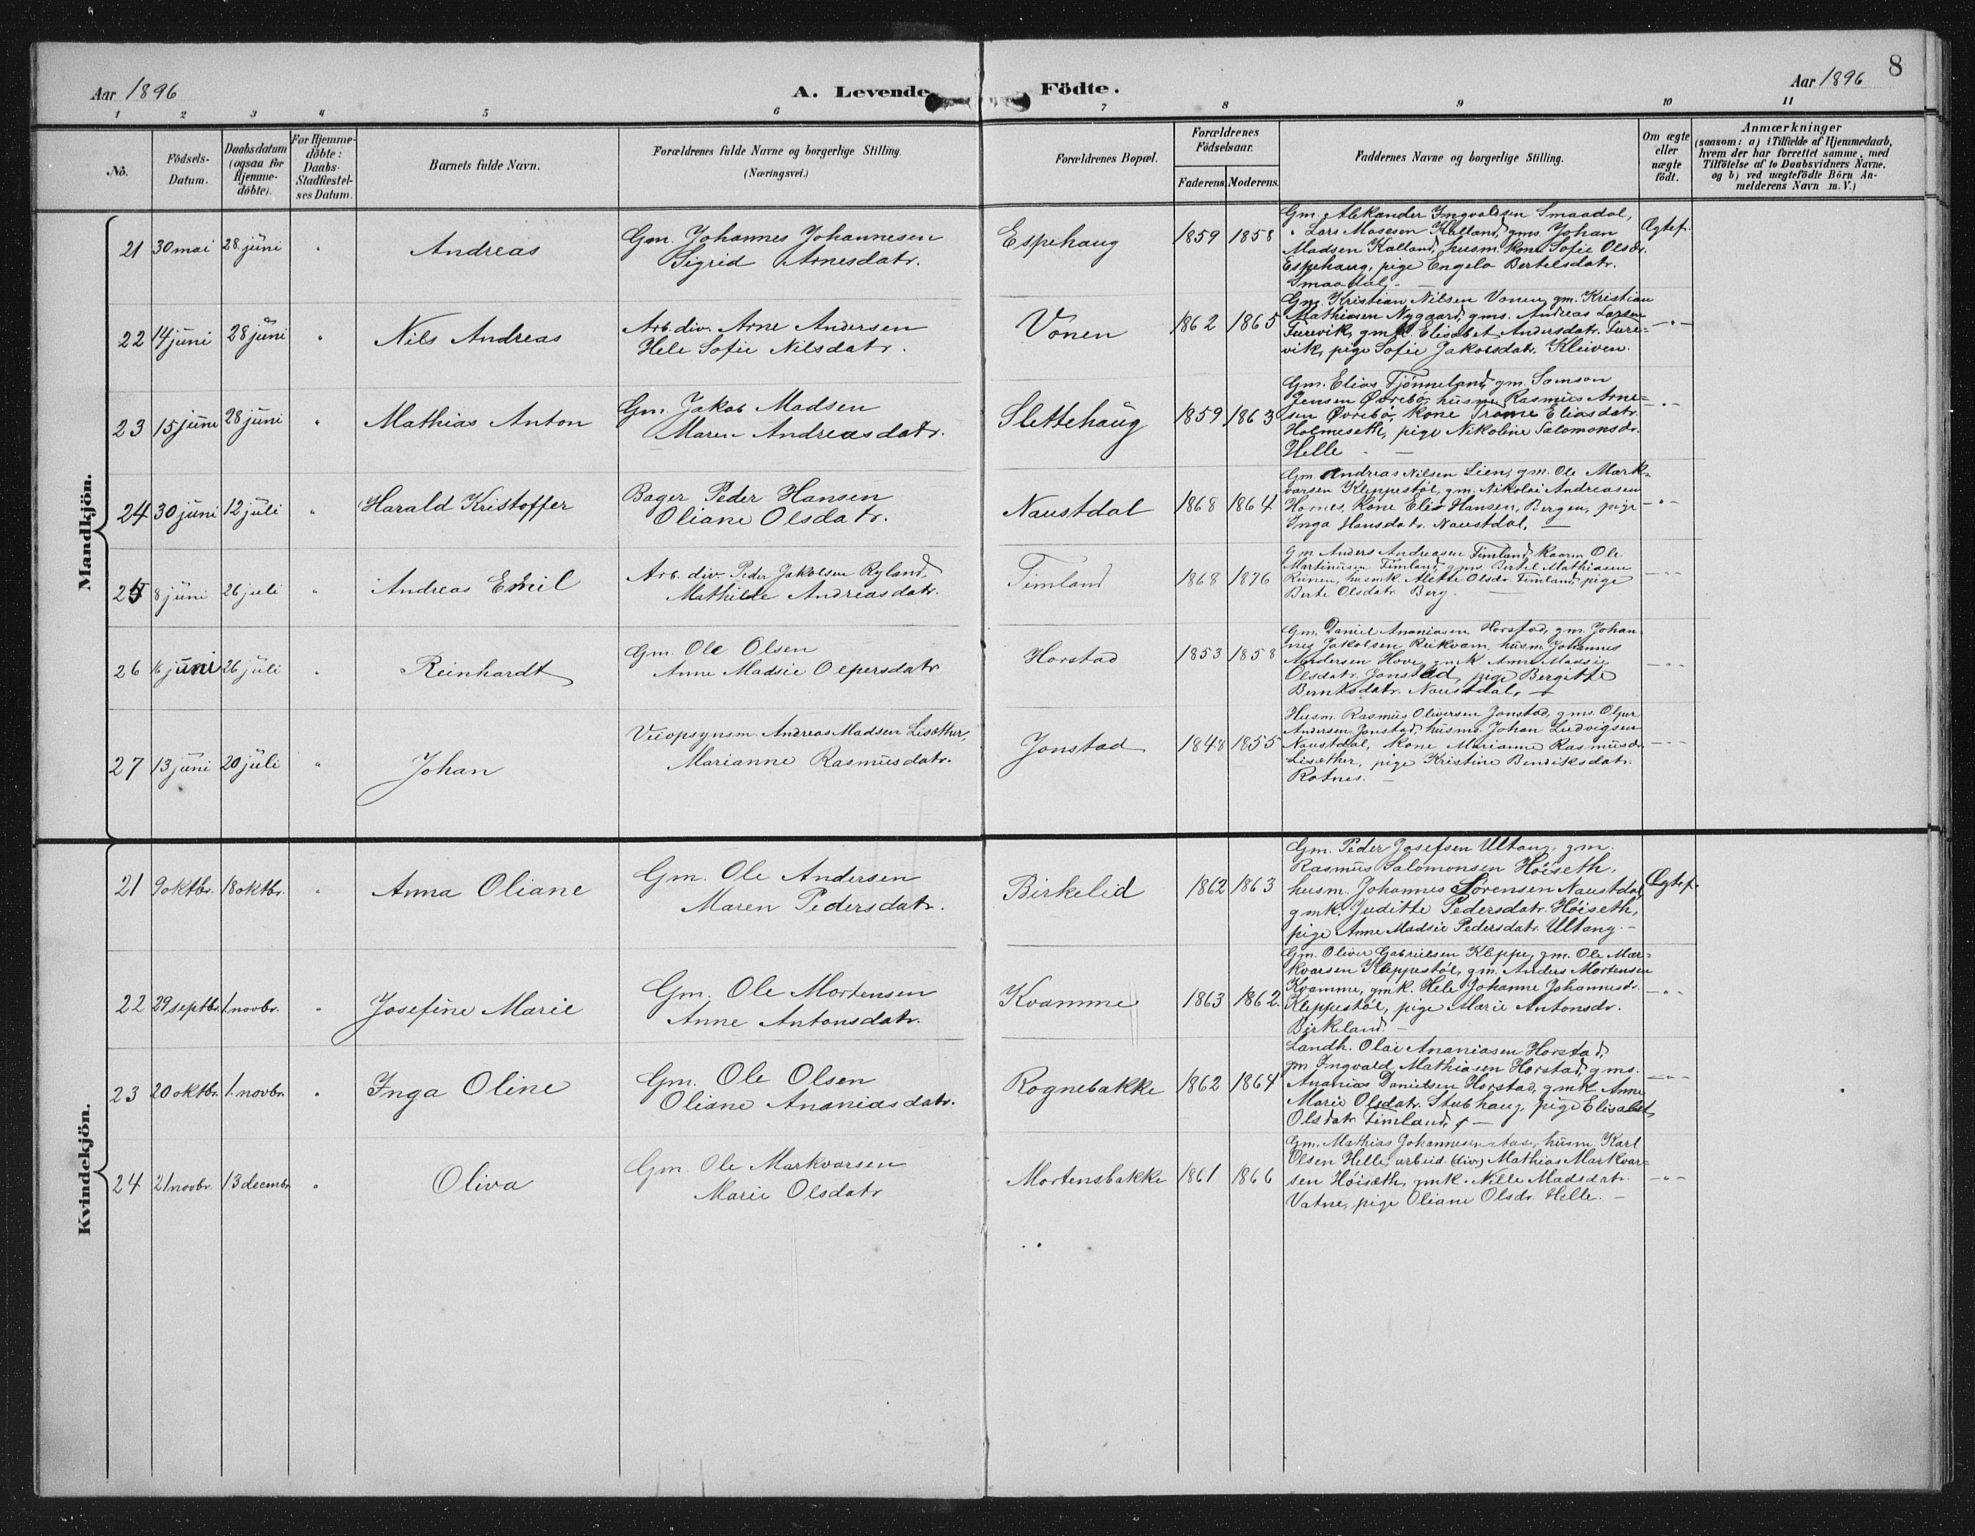 8
Aar 1896 A. Levende Födte. Aar 1896
1 2 3 4 5 6 7 8 9 10 11
No.
Födsels-
Datum.
Daabsdatum
(ogsaa for
Hjemme-
döbte).
For Hjemme-
döbte:
Daabs-
Stadfæstel-
ses Datum.
Barnets fulde Navn.
Forældrenes fulde Navne og borgerlige Stilling.
(Næringsvei.)
Forældrenes Bopæl.
Forældrenes
Födselsaar.
Faderens. Moderens.
Faddernes Navne og borgerlige Stilling.
Om ægte
eller
uægte
födt.
Anmærkninger
(saasom: a) i Tilfælde af Hjemmedaab,
hvem der har forrettet samme, med
Tilföielse af to Daabsvidners Navne,
og b) ved uægtefödte Börn An-
melderens Navn m. V.)
Mandkjön.
21 30 mai 28 juni " Andreas
Gm. Johannes Johannesen
Sigrid Arnesdatr.
Espehaug 1859 1858
Gm. Aleksander Ingvaldsen Smaadal,
" Lars Mosesen Kalland, gms. Johan
Madsen Kalland, husm. kone Sofie Olsdr.
Espehaug, pige Engela Bertelsdatr.
Smaadal. —
Ægtef.
22 14 juni 28 juni " Nils Andreas
Arb. div. Arne Andersen
Hele Sofie Nilsdatr.
Vonen 1862 1865
Gm. Kristian Nilsen Vonen, gm. Kristian
Mathiasen Nygaard, gms. Andreas Larsen
Furevik, gmk. Elisabet Andersdatr. Fure-
vik, pige Sofie Jakobsdatr. Kleiven.
— " —
23 15 juni 28 juni " Mathias Anton
Gm. Jakob Madsen
Maren Andreasdatr.
Slettehaug 1859 1863
Gm. Elias Tjønneland, gm. Samson
Jensen Øvrebø, husm. Rasmus Arne-
sen Øvrebø, kone Trone Eliasdatr.
Holmeseth, pige Nikoline Salomonsdr.
Helle —
— " —
24 30 juni 12 juli " Harald Kristoffer
Bager Peder Hansen
Oliane Olsdatr.
Naustdal 1868 1864
Gm. Andreas Nilsen Lien, gm. Ole Mark-
varsen Kleppestøl, gm. Nikolai Andreasen
Hornes, kone Elis Hansen, Bergen, pige
Inga Hansdatr. Naustdal. —
— " —
25 8 juni 26 juli " Andreas Emil
Arb. div. Peder Jakobsen Ryland,
Mathilde Andreasdatr.
Timland 1868 1876
Gm. Anders Andreasen Timland, Ole
Martinusen Timland, gms. Bertel Mathiasen
husmk. Alette Olsdr. Timland, pige
Berte Olsdatr. Berg. —
— " —
26 16 juni 26 juli " Reinhardt
Gm. Ole Olsen
Anne Madsie Olpersdatr.
Horstad 1853 1858
Gm. Daniel Ananiasen Horstad, gm. Johan-
nes Jakobsen Reikvam, husm. Johannes
Andersen Hove, gmk. Anne Madsie
Olsdatr. Jonstad, pige Bergitte
Berntsdatr. Naustdal. —
— " —
27 13 juni 20 juli " Johan
Veiopsynsm. Andreas Madsen Lisæther,
Marianne Rasmusdatr.
Jonstad 1848 1855
Husm. Rasmus Oliversen Jonstad, gms. Olper
Andersen Jonstad, husms. Johan Ludvigsen
Naustdal, kone Marianne Rasmusdr.
Lisæther, pige Kristine Bendiksdatr.
Rotnes. —
— " —
Kvindekjön.
21 9 oktbr. 18 oktbr. " Anna Oliane
Gm. Ole Andersen
Maren Pedersdatr.
Birkelid 1862 1863
Gm. Peder Josefsen Ultang, gm.
Rasmus Salomonsen Høiseth,
husm. Johannes Sørensen Naustdal,
gmk. Juditte Pedersdatr. Høiseth,
pige Anne Madsie Pedersdatr. Ultang. —
Ægtef.
22 29 septbr. 1. novbr. " Josefine Marie
Gm. Ole Mortensen
Anne Antonsdatr.
Kvamme 1863 1862.
Gm. Oliver Gabrielsen Kleppe, gm. Ole Mar-
kvarsen Kleppestøl, gm. Anders Mortensen
Kvamme, gmk. Hele Johanne Johannesdr.
Kleppestøl, pige Marie Antonsdr.
Birkeland. —
— " —
23 20 oktbr. 1. novbr. " Inga Oline
Gm. Ole Olsen
Oliane Ananiasdatr.
Rognebakke 1862 1864
Landh. Olai Ananiasen Horstad,
gm. Ingvald Mathiasen Horstad, gms.
Ananias Danielsen Horstad, gmk. Anne
Marie Olsdatr. Stubhaug, pige Elisabet
Olsdatr. Timland. —
— " —
24 21 novbr. 13 decembr. " Oliva
Gm. Ole Markvarsen
Marie Olsdatr
Mortensbakke 1861 1866
Gm. Mathias Johannesen Aas, husm. Karl
Olsen Helle, arbeid. (div.) Mathias Markvar-
sen Høisæth, gmk. Nille Madsdatr.
Vatne, pige Oliane Olsdr. Helle. —
— " —